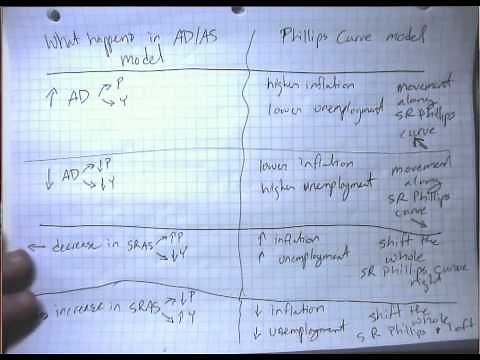 What happens in AD/AS model
Phillips Curve model
↑ AD → P
→ Y
higher inflation
lower unemployment
movement
along
SR Phillips
curve
↓ AD → ↓P
→ ↓Y
lower inflation
higher unemployment
movement
along
SR Phillips
curve
← decrease in SRAS → ↑P
→ ↓Y
↑ inflation
↑ unemployment
shift the
whole
SR Phillips curve
right
→ increase in SRAS → ↓P
→ ↑Y
↓ inflation
↓ unemployment
shift the
whole
SR Phillips left